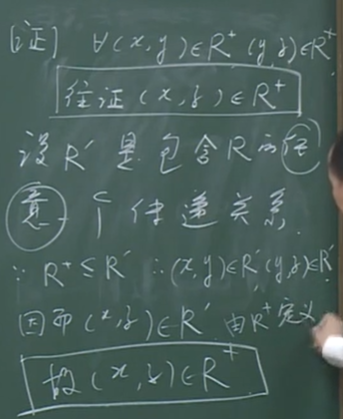 [证] ∀(x,y)∈R⁺ (y,z)∈R⁺
往证(x,z)∈R⁺
设R′是包含R的任
意一个传递关系.
∵ R⁺⊆R′ ∴(x,y)∈R′(y,z)∈R′
因而(x,z)∈R′ 由R⁺定义
故(x,z)∈R⁺